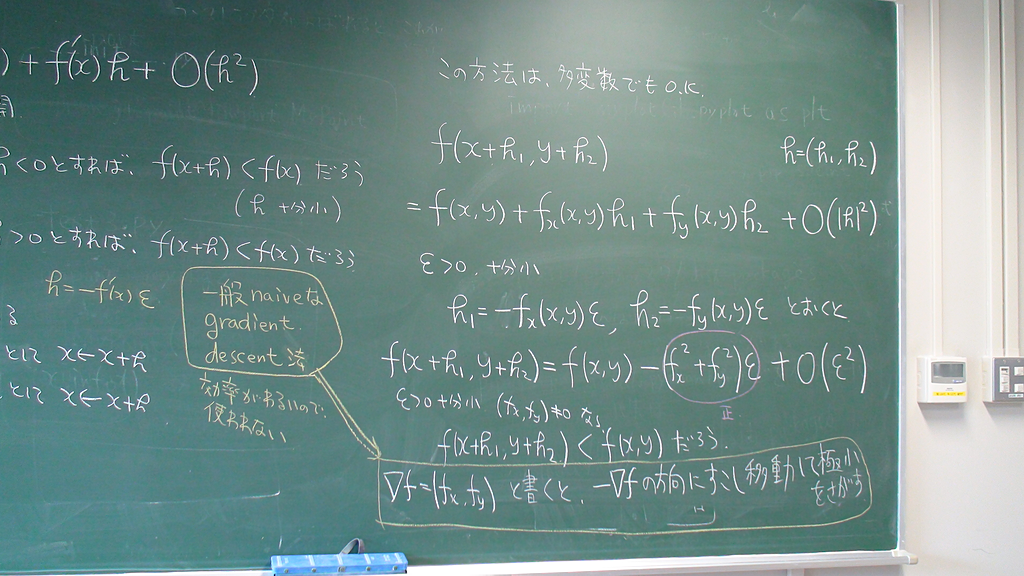 ) + f'(x)h + O(h²)
h<0とすれば、 f(x+h)<f(x) だろう
(h 十分小)
>0とすれば、 f(x+h)<f(x) だろう
h=-f'(x)ε
x←x+h
x←x+h
一般naiveな
gradient
descent法
効率がわるいので、
使われない
この方法は、多変数でもO.K.
f(x+h₁, y+h₂) h=(h₁, h₂)
= f(x,y) + fₓ(x,y)h₁ + f_y(x,y)h₂ + O(|h|²)
ε>0 十分小
h₁=-fₓ(x,y)ε, h₂=-f_y(x,y)ε とおくと
f(x+h₁, y+h₂) = f(x,y) - (fₓ²+f_y²)ε + O(ε²)
正
ε>0 十分小 (fₓ,f_y)≠0 なら
f(x+h₁, y+h₂) < f(x,y) だろう.
∇f=(fₓ,f_y) と書くと、 -∇fの方向にすこし移動して極小
をさがす